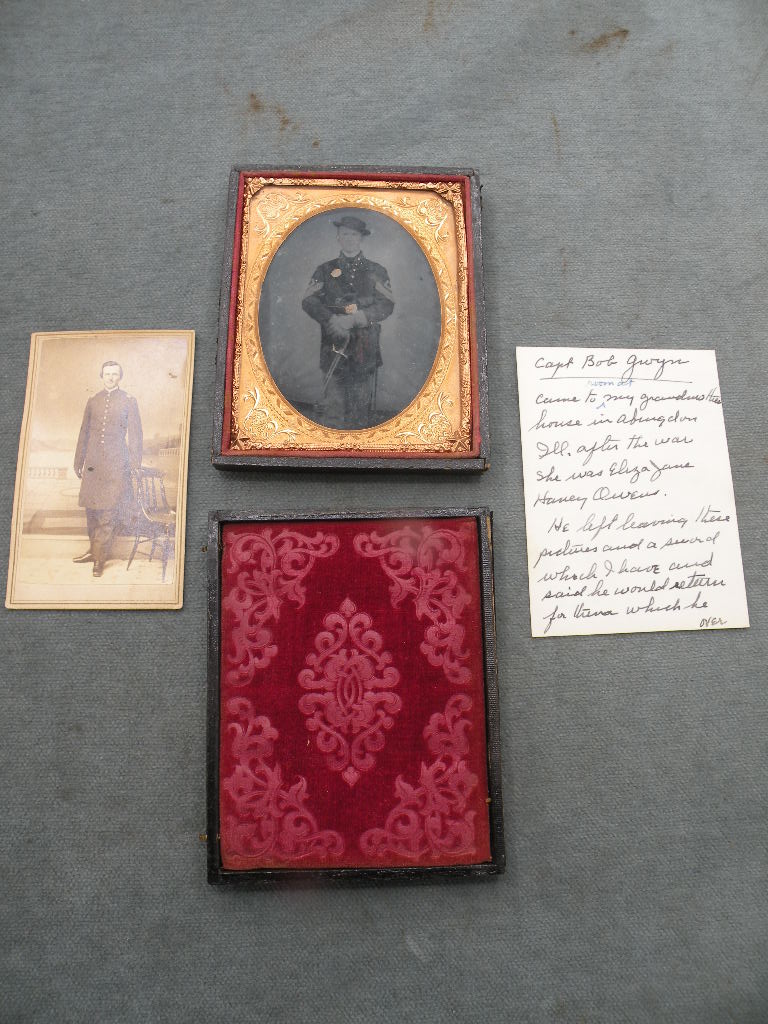 Capt Bob Gwyn
room at
came to my grandmothers
house in Abingdon
Ill. after the war
she was Eliza Jane
Haney Owens.
He left leaving these
pictures and a sword
which I have and
said he would return
for them which he
over